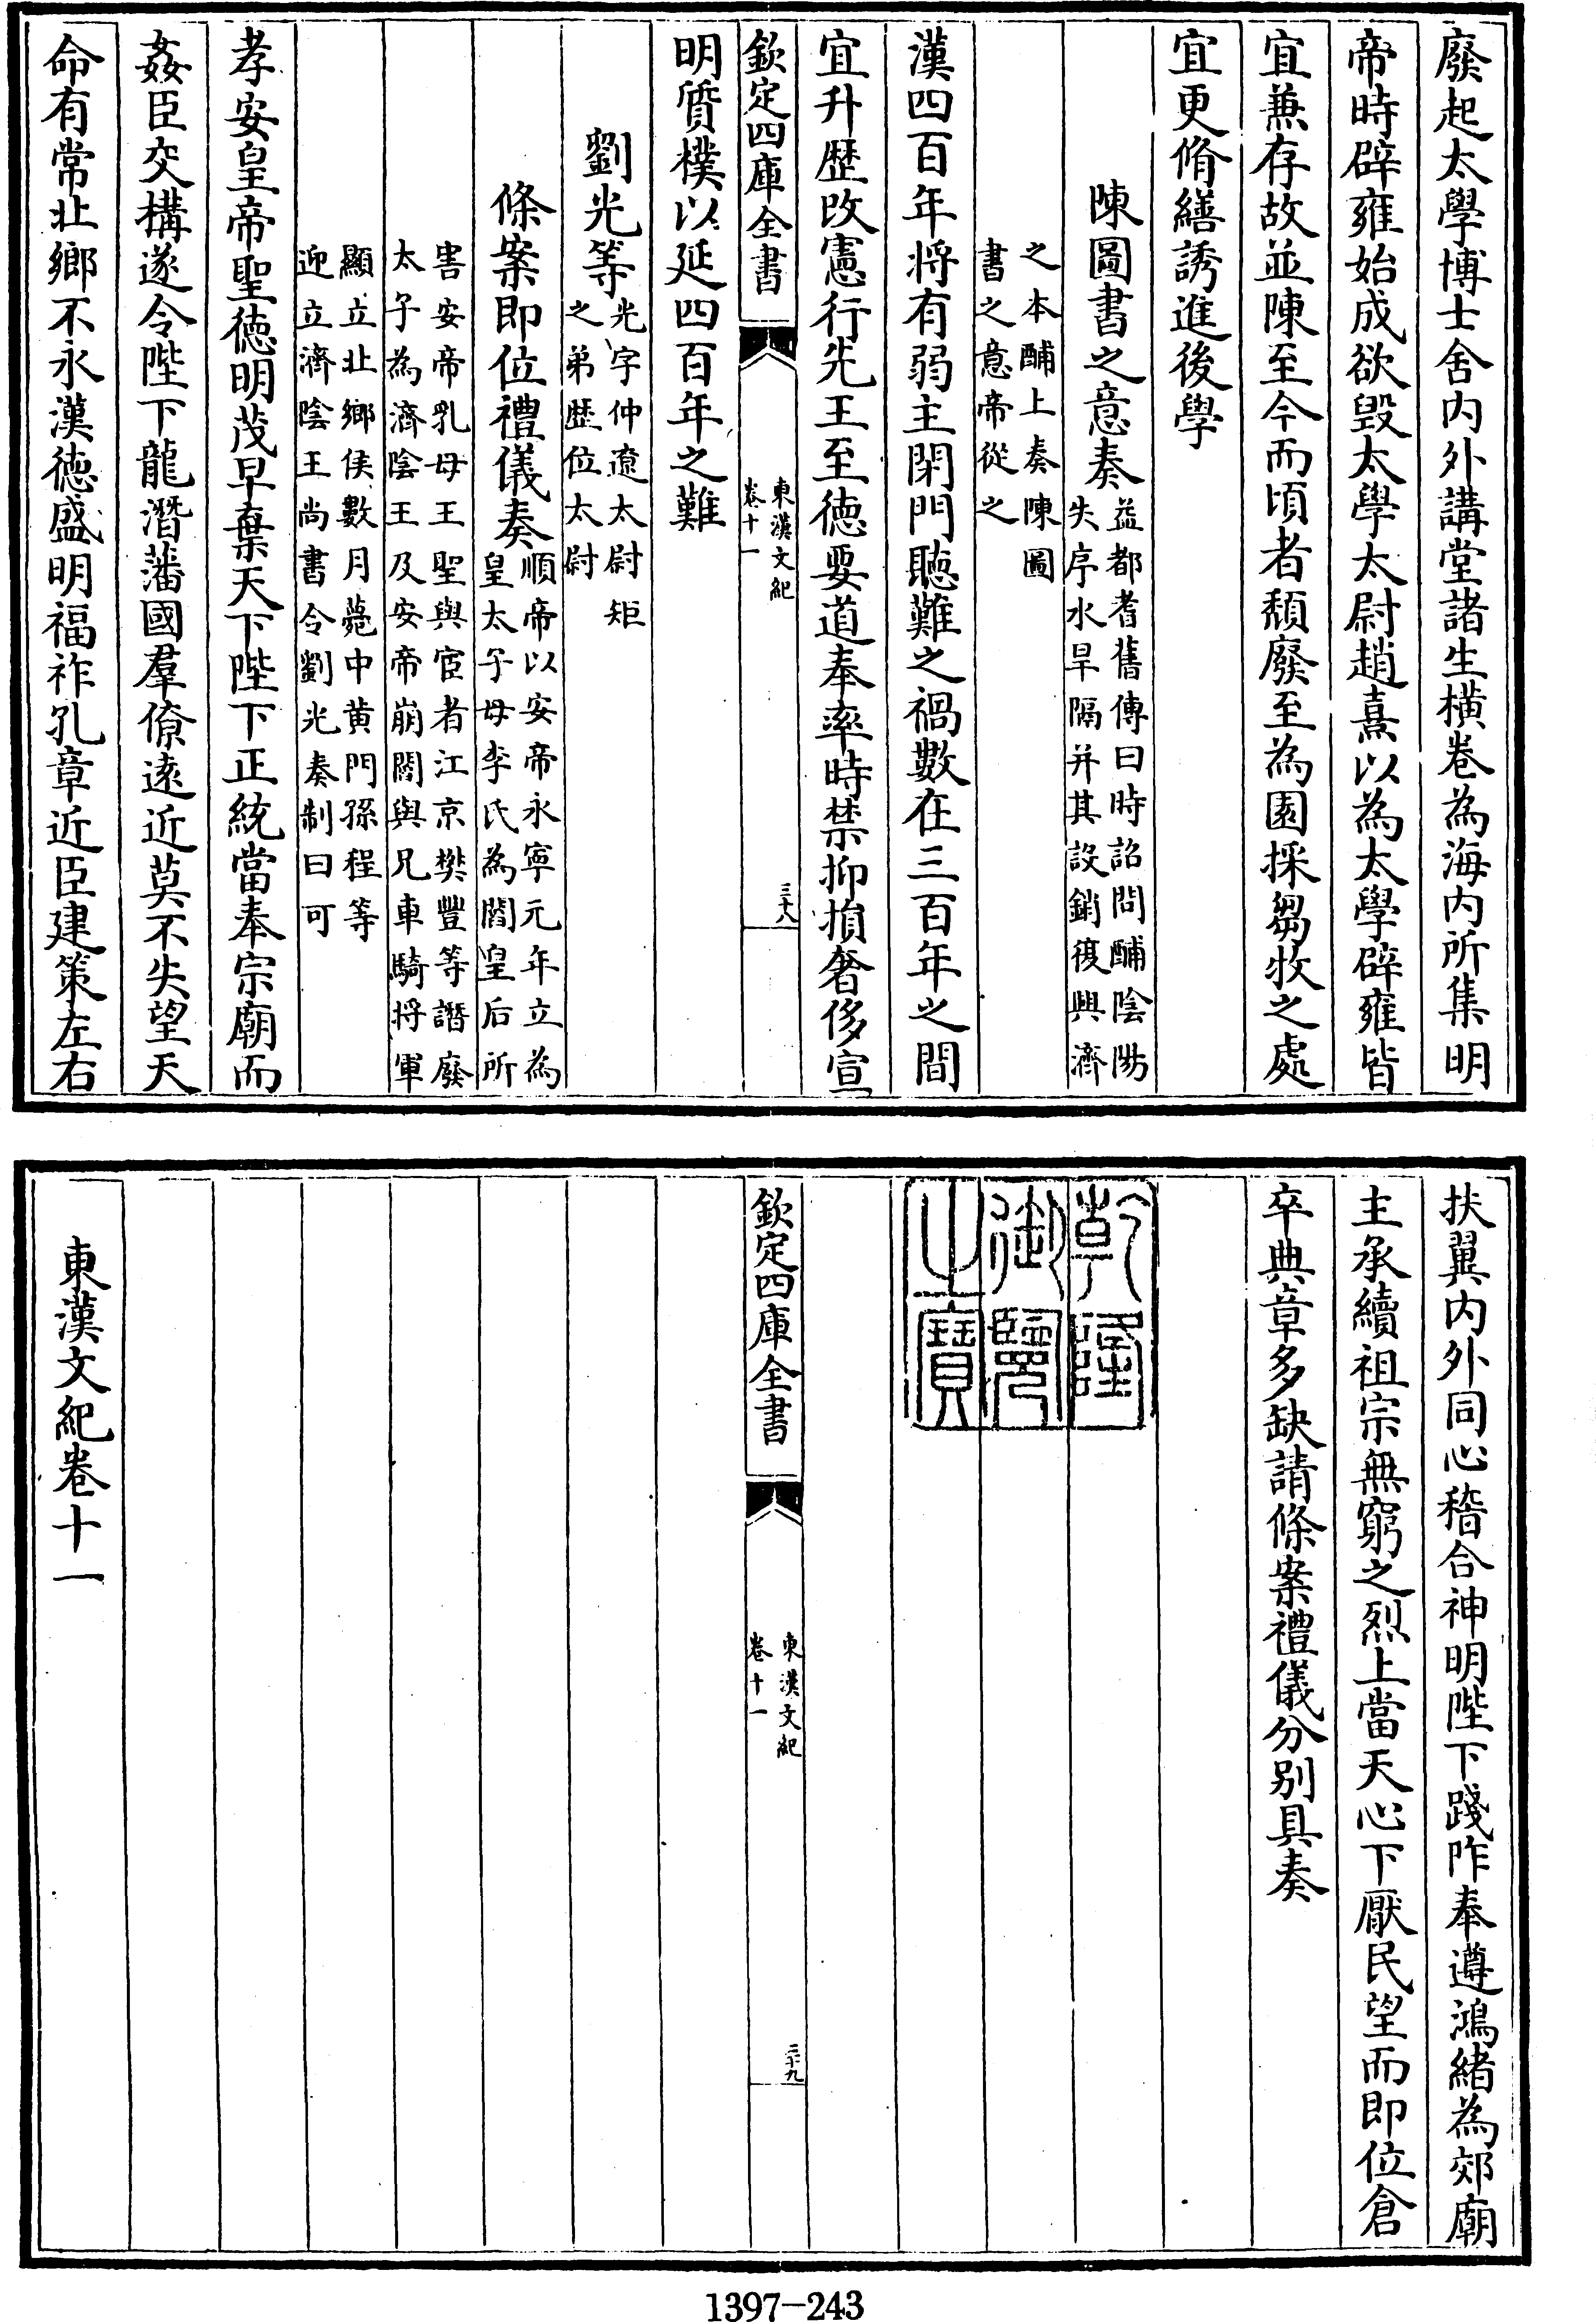 廢起太學博士舍内外講堂諸生横巻為海内所集明
帝時辟雍始成欲毁太學太尉趙熹以為太學辟雍皆
宜兼存故並陳至今而頃者頽廢至為園採芻牧之處
宜更脩繕誘進後學
陳圖書之意奏
益都耆舊傳曰時詔問酺陰陽
失序水旱隔并其設銷復興濟
之本酺上奏陳圖
書之意帝從之
漢四百年將有弱主閉門聽難之禍數在三百年之間
宜升歴改憲行先王至徳要道奉率時禁抑損奢侈宣
欽定四庫全書
東漢文紀
巻十一
三十八
明質樸以延四百年之難
劉光等
光字仲遼太尉矩
之弟歴位太尉
條案即位禮儀奏
順帝以安帝永寧元年立為
皇太子母李氏為閻皇后所
害安帝乳母王聖與宦者江京樊豐等譖廢
太子為濟陰王及安帝崩閻與兄車騎將軍
顯立北鄉侯數月薨中黄門孫程等
迎立濟陰王尚書令劉光奏制曰可
孝安皇帝聖徳明茂早棄天下陛下正統當奉宗廟而
姦臣交構遂令陛下龍潛藩國羣僚逺近莫不失望天
命有常北鄉不永漢徳盛明福祚孔章近臣建策左右
扶翼内外同心稽合神明陛下踐阼奉遵鴻緒為郊廟
主承續祖宗無窮之烈上當天心下厭民望而即位倉
卒典章多缺請條案禮儀分别具奏
乾隆
御覽
之寶
欽定四庫全書
東漢文紀
巻十一
三十九
東漢文紀巻十一
1397-243